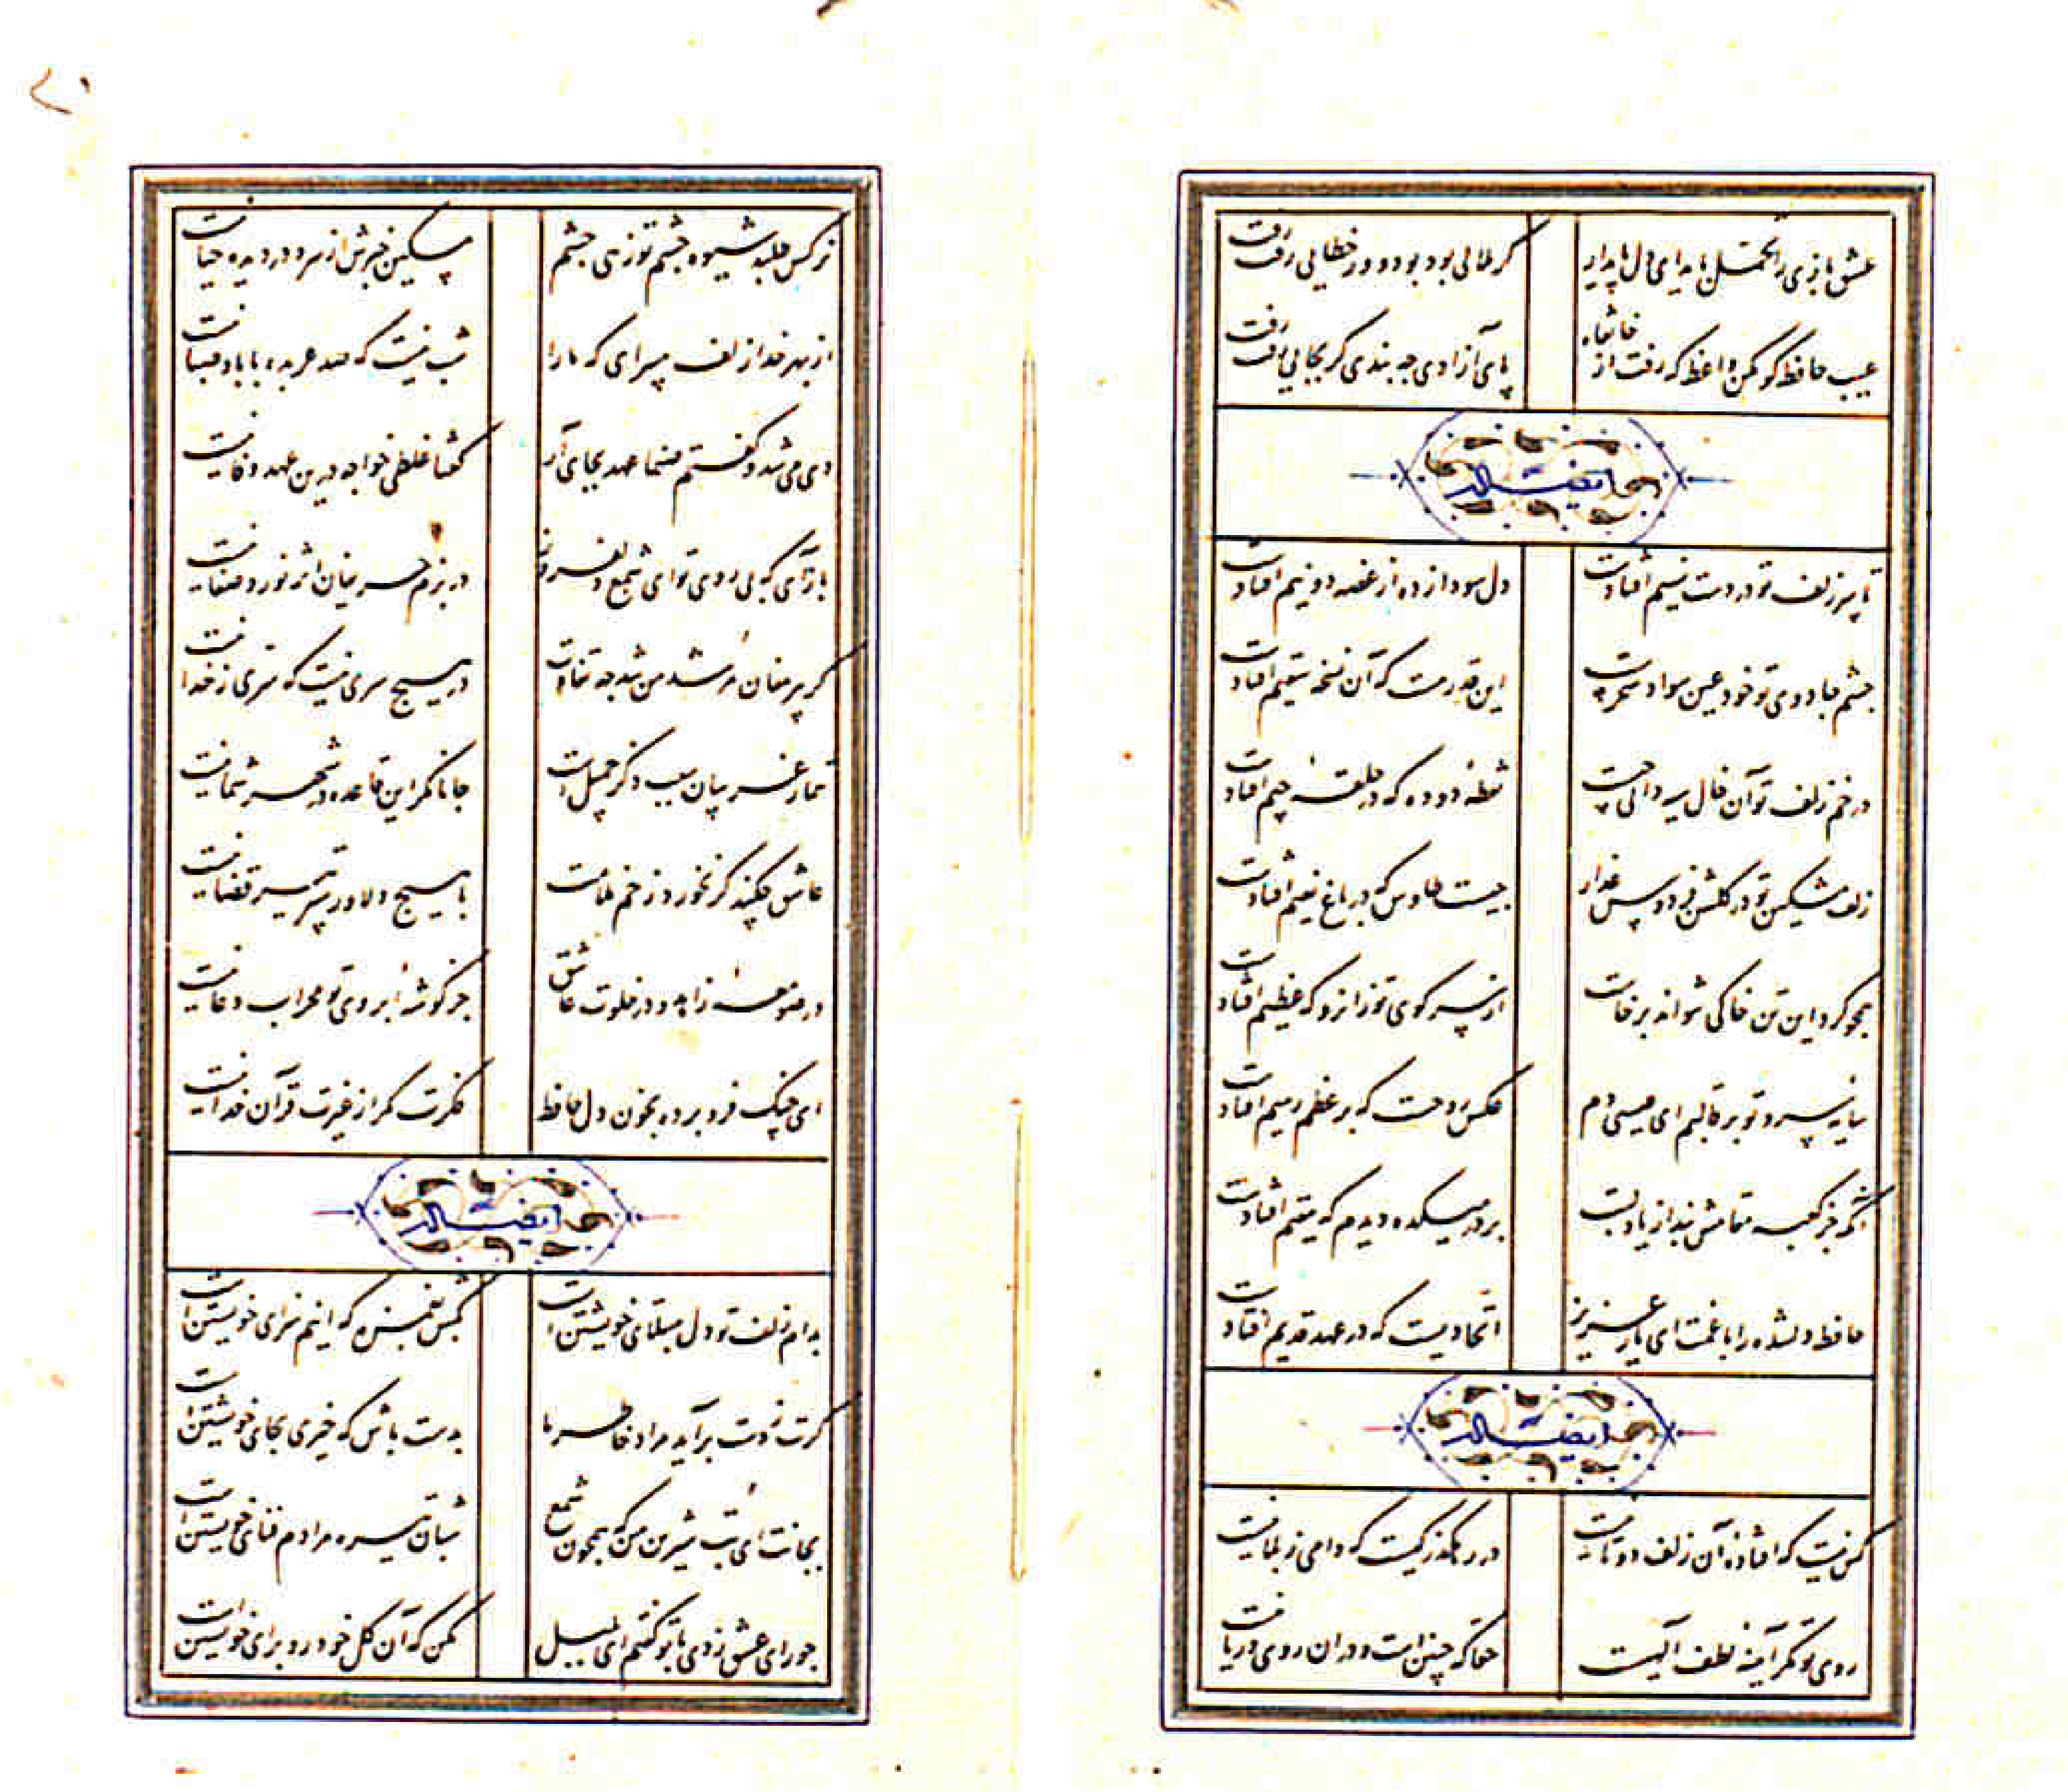 عشق بازی را تحمل باید ای دل پایدار
گر ملالی بود بود و ور خطایی رفت رفت
عیب حافظ گو مکن واعظ که رفت از خانقاه
پای آزادی چه بندی گر بجایی رفت رفت
ایضا له
تا سر زلف تو در دست نسیم افتادست
دل سودا زده از غصه دو نیم افتادست
چشم جادوی تو خود عین سواد سحرست
این قدر هست که آن نسخه سقیم افتادست
در خم زلف تو آن خال سیه دانی چیست
نقطه دوده که در حلقه جیم افتادست
زلف مشکین تو در گلشن فردوس عذار
چیست طاوس که در باغ نعیم افتادست
همچو گرد این تن خاکی نتواند برخاست
از سر کوی تو زانرو که عظیم افتادست
سایه سرو تو بر قالبم ای عیسی دم
عکس روحست که بر عظم رمیم افتادست
آنکه جز کعبه مقامش نبد از یاد لبت
بر در میکده دیدم که مقیم افتادست
حافظ دلشده را با غمت ای یار عزیز
اتحادیست که در عهد قدیم افتادست
ایضا له
کس نیست که افتاده آن زلف دوتا نیست
در رهگذر کیست که دامی ز بلا نیست
روی تو مگر آینه لطف الهیست
حقا که چنین است و در ان روی و ریا نیست
نرگس طلبد شیوه چشم تو زهی چشم
مسکین خبرش از سر و در دیده حیا نیست
از بهر خدا زلف مپیرای که ما را
شب نیست که صد عربده با باد صبا نیست
دی می شد و گفتم صنما عهد بجای آر
گفتا غلطی خواجه درین عهد وفا نیست
بازآی که بی روی تو ای شمع دلفروز
در بزم حریفان اثر نور و صفا نیست
گر پیر مغان مرشد من شد چه تفاوت
در هیچ سری نیست که سری ز خدا نیست
تیمار غریبان سبب ذکر جمیل است
جانا مگر این قاعده در شهر شما نیست
عاشق چکند گر نخورد زخم ملامت
با هیچ دلاور سپر تیر قضا نیست
در صومعه زاهد و در خلوت عاشق
جز گوشه ابروی تو محراب دعا نیست
ای چنگ فرو برده بخون دل حافظ
فکرت مگر از غیرت قرآن خدا نیست
ایضا له
بدام زلف تو دل مبتلای خویشتن است
بکش بغمزه که اینم سزای خویشتن است
گرت ز دست برآید مراد خاطر ما
بدست باش که خیری بجای خویشتن است
بجانت ای بت شیرین من که همچون شمع
شبان تیره مرادم فنای خویشتن است
چو رای عشق زدی با تو گفتم ای بلبل
مکن که آن گل خودرو برای خویشتن است